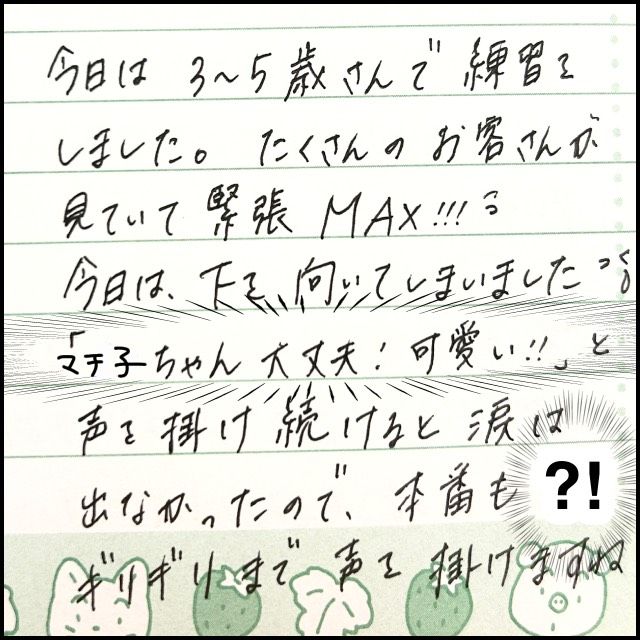 今日は 3～5歳さんで 練習を
しました。 たくさんの お客さんが
見ていて 緊張 MAX!!!
今日は、下を 向いてしまいました
「マチ子ちゃん 大丈夫! 可愛い!!」と
声を 掛け 続けると 涙は
出なかったので、本番も
?!
ギリギリまで 声を 掛けますね